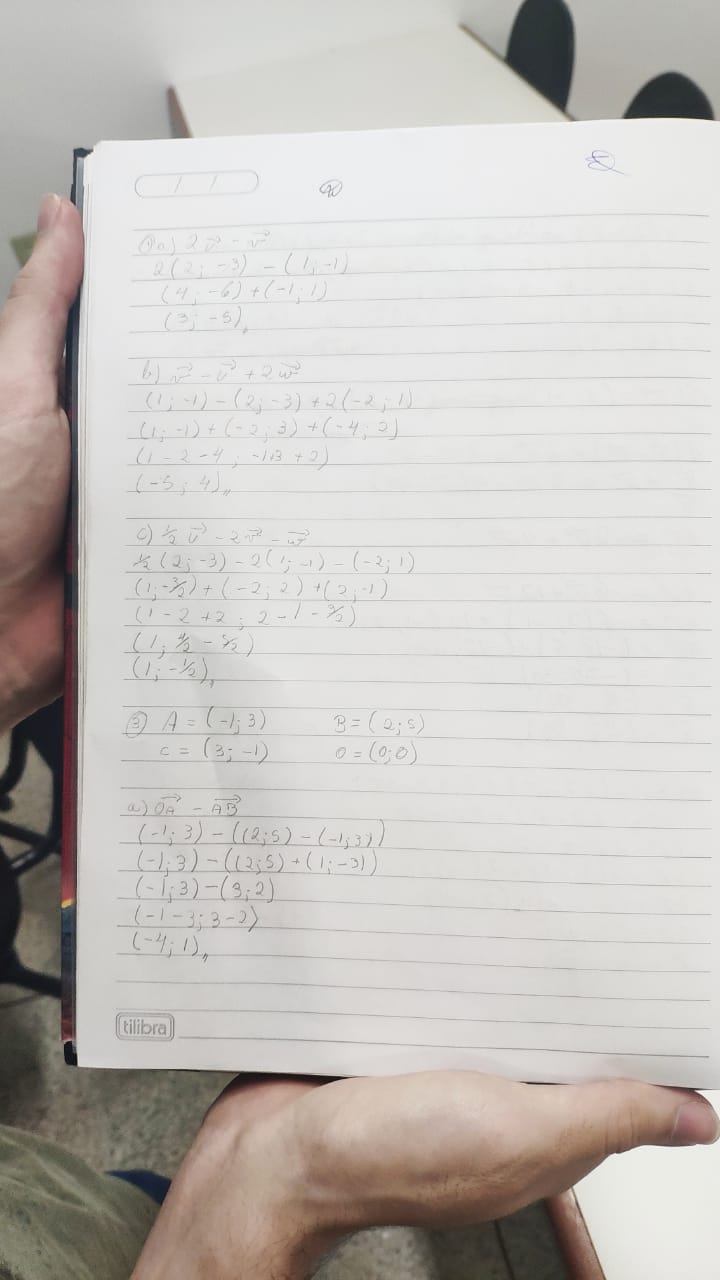 / /
a) 2u⃗ - v⃗
2(2; -3) - (1; -1)
(4; -6) + (-1; 1)
(3; -5)„
b) v⃗ - u⃗ + 2w⃗
(1; -1) - (2; -3) + 2(-2; 1)
(1; -1) + (-2; 3) + (-4; 2)
(1 - 2 - 4 ; -1+3 + 2)
(-5; 4)„
c) ½ u⃗ - 2v⃗ - w⃗
½ (2; -3) - 2(1; -1) - (-2; 1)
(1; -3/2) + (-2; 2) + (2; -1)
(1 - 2 + 2 ; 2 - 1 - 3/2)
(1; 4/2 - 5/2)
(1; -1/2)„
③ A = (-1; 3) B = (2; 5)
C = (3; -1) O = (0; 0)
a) OA⃗ - AB⃗
(-1; 3) - ((2; 5) - (-1; 3))
(-1; 3) - ((2; 5) + (1; -3))
(-1; 3) - (3; 2)
(-1 - 3; 3 - 2)
(-4; 1)„
tilibra